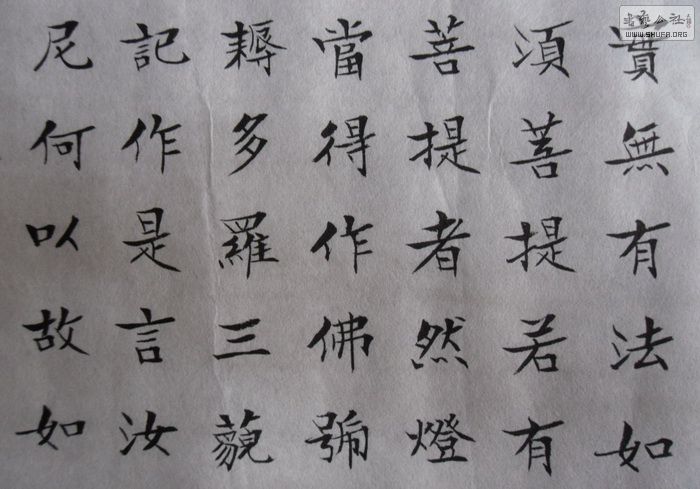 實無有法如
須菩提若有
菩提者然燈
當得作佛號
耨多羅三藐
記作是言汝
尼何以故如
書藝公社
WWW.SHUFA.ORG